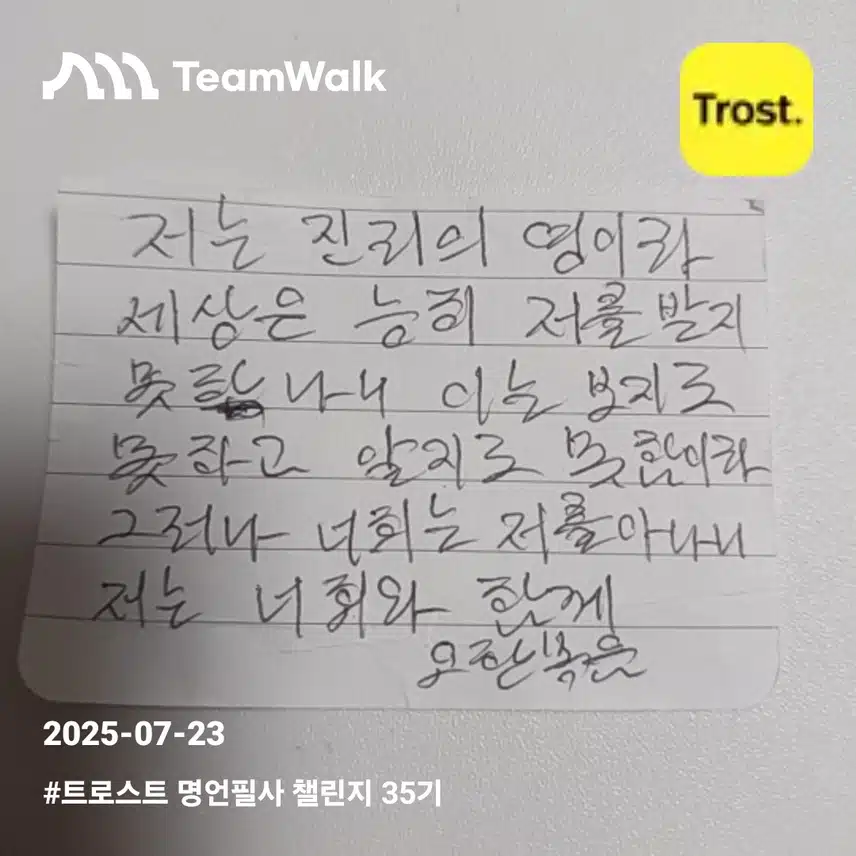 TeamWalk
Trost.
저는 진리의 영이라
세상은 능히 저를 받지
못하나니 이는 보지도
못하고 알지도 못함이라
그러나 너희는 저를 아나니
저는 너희와 함께
요한복음
2025-07-23
#트로스트 명언필사 챌린지 35기